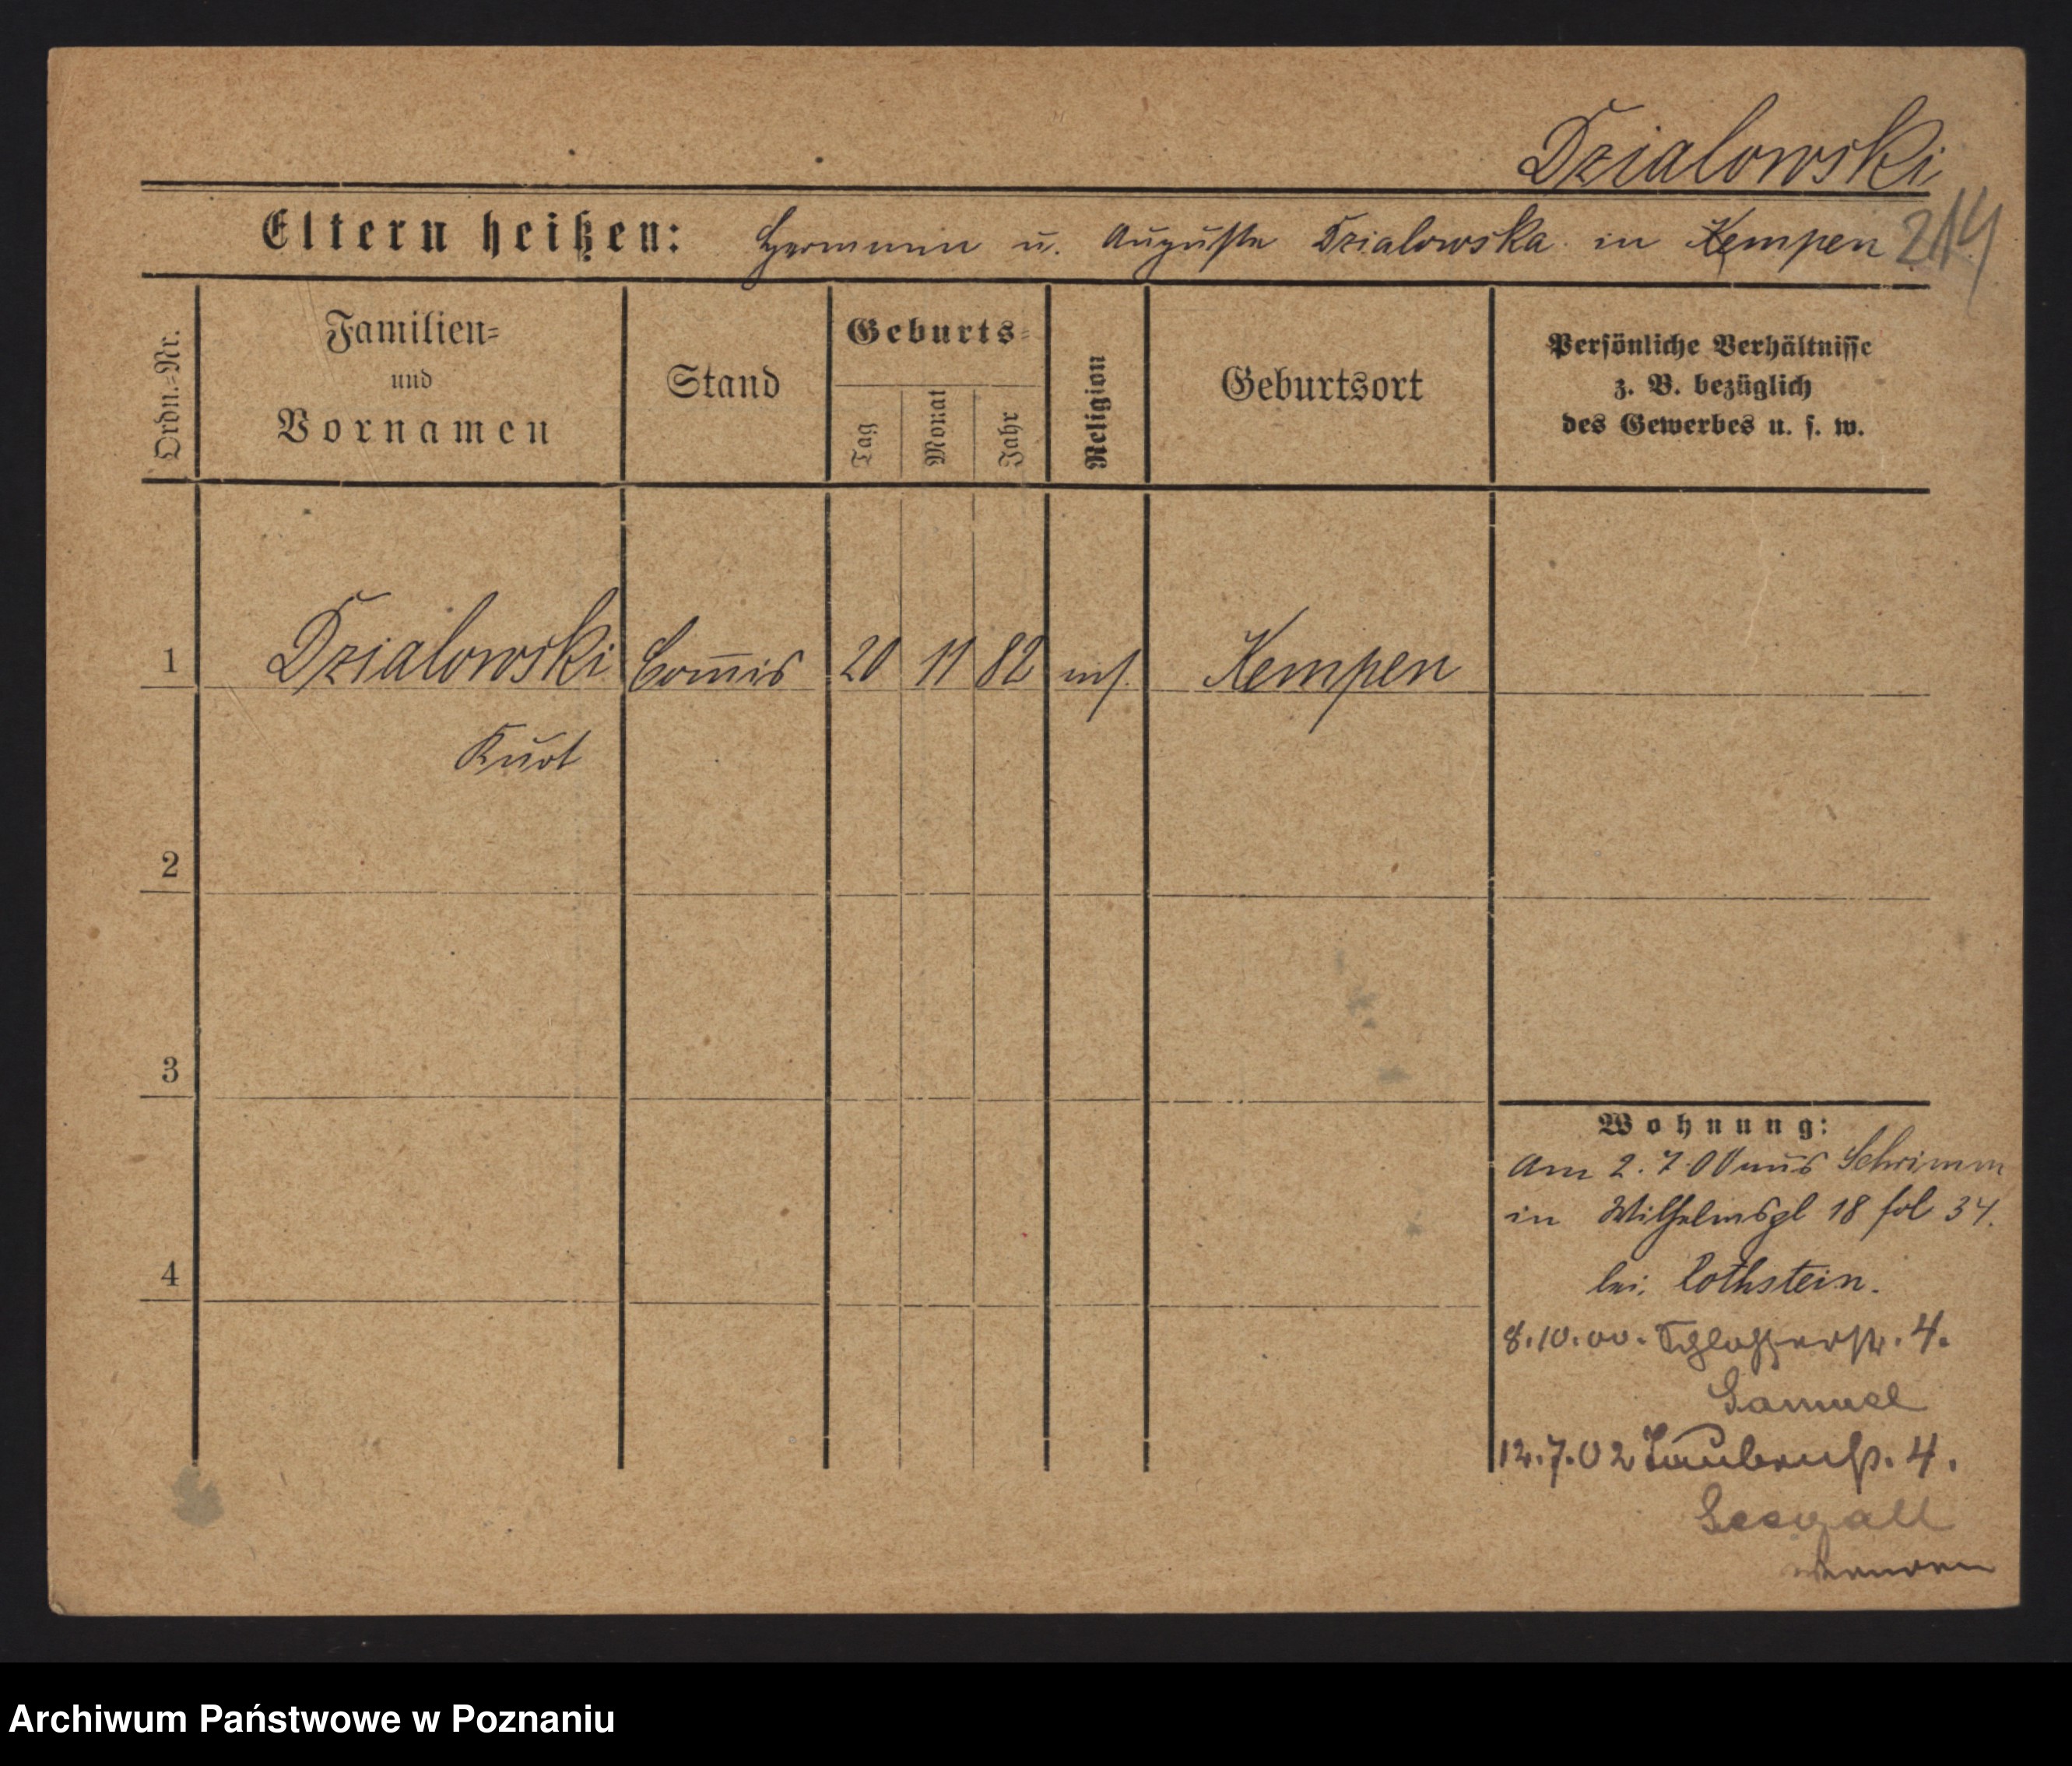 Dzialowski
Eltern heißen: Hermann u. Auguste Dzialowska in Kempen 214
Ordn.=Nr.
Familien=
und
Vornamen
Stand
Geburts=
Tag
Monat
Jahr
Religion
Geburtsort
Persönliche Verhältnisse
z. B. bezüglich
des Gewerbes u. s. w.
1 Dzialowski Com̅is 20 11 82 mos. Kempen
Kurt
2
3
4
Wohnung:
Am 2.7.00 aus Schrimm
in Wilhelmspl 18 fol 34.
bei Rothstein.
8.10.00. Schlosserstr. 4.
Samuel
12.7.02 Taubenstr. 4.
Seegall
Archiwum Państwowe w Poznaniu